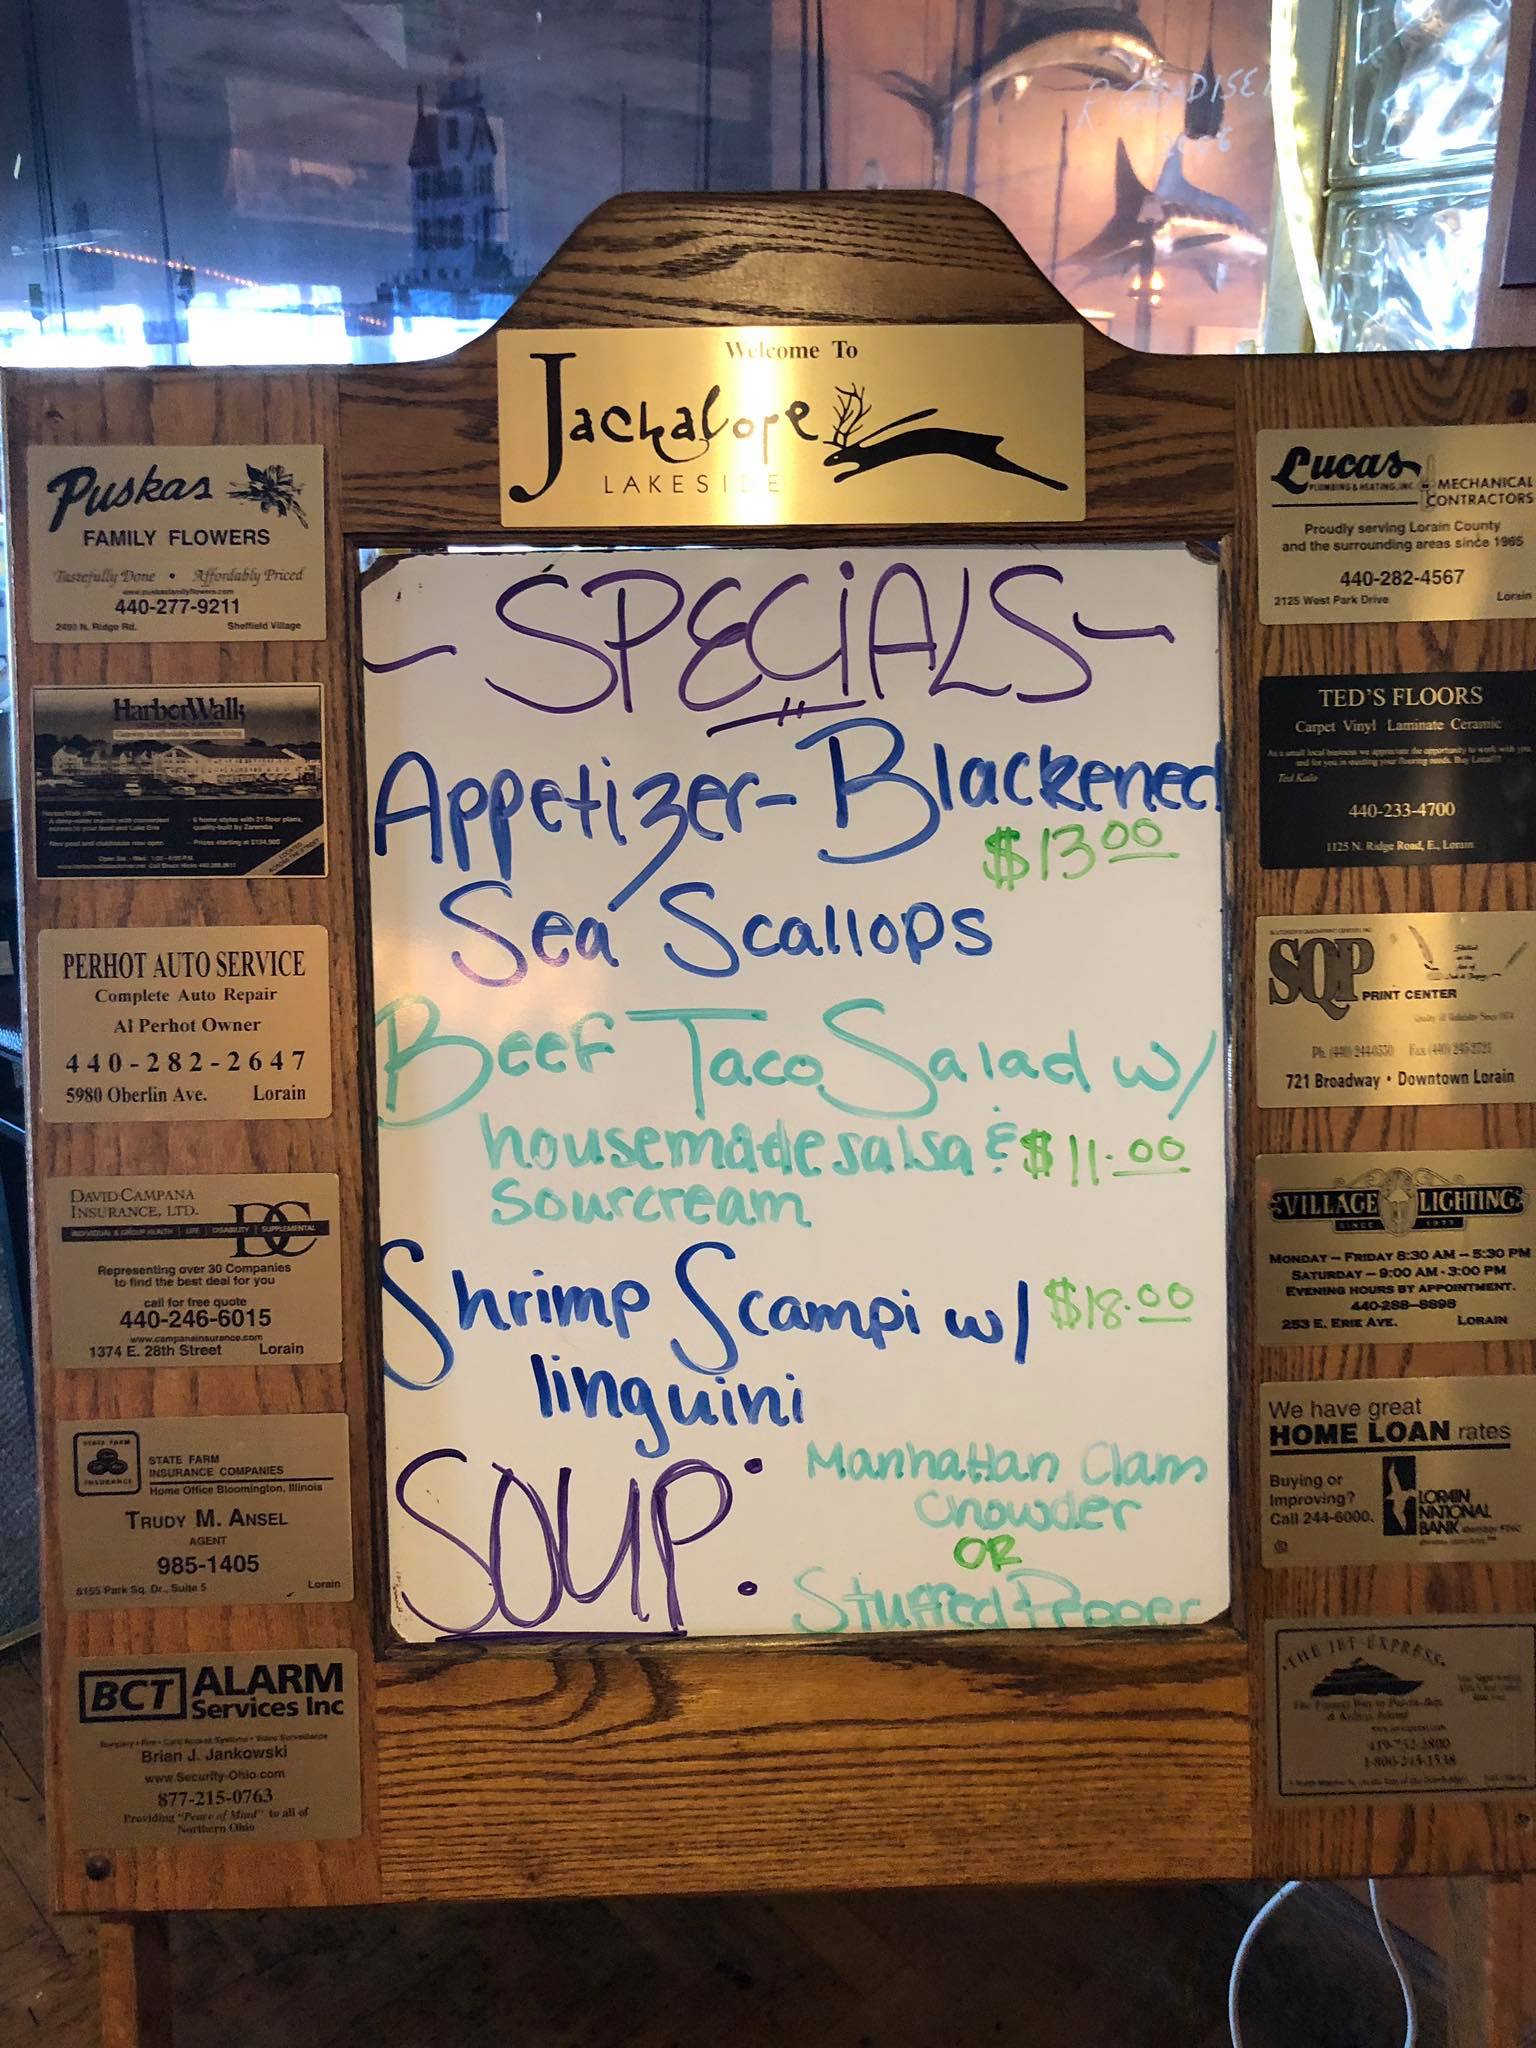 R GRADISEK
2006
Welcome To
Jackalope
LAKESIDE
Puskas
FAMILY FLOWERS
Tastefully Done • Affordably Priced
www.puskasfamilyflowers.com
440-277-9211
N. Ridge Rd. Sheffield Village
HarborWalk
HarborWalk offers:
6 home styles with 21 floor plans,
quality-built by Zaremba
New pool and clubhouse now open
Prices starting at
PERHOT AUTO SERVICE
Complete Auto Repair
Al Perhot Owner
440-282-2647
5980 Oberlin Ave. Lorain
DAVID CAMPANA
INSURANCE, LTD.
DC
INDIVIDUAL & GROUP HEALTH | LIFE | DISABILITY | SUPPLEMENTAL
Representing over 30 Companies
to find the best deal for you
call for free quote
440-246-6015
www.campanainsurance.com
1374 E. 28th Street Lorain
STATE FARM
INSURANCE
STATE FARM
INSURANCE COMPANIES
Home Office Bloomington, Illinois
TRUDY M. ANSEL
AGENT
985-1405
Park Sq. Dr., Suite 5 Lorain
BCT ALARM
Services Inc
Burglary • Fire • Card Access Systems • Video Surveillance
Brian J. Jankowski
www.Security-Ohio.com
877-215-0763
Providing "Peace of Mind" to all of
Northern Ohio
~ SPECiALS ~
Appetizer- Blackened
$13.00
Sea Scallops
Beef Taco Salad w/
housemade salsa & $11.00
sourcream
Shrimp Scampi w/ $18.00
linguini
SOUP: Manhattan Clam
Chowder
OR
Stuffed Pepper
Lucas
PLUMBING & HEATING, INC. MECHANICAL
CONTRACTORS
Proudly serving Lorain County
and the surrounding areas since 1965
440-282-4567
2125 West Park Drive Lorain
TED'S FLOORS
Carpet Vinyl Laminate Ceramic
As a small local business we appreciate the opportunity to work with you
and for you in meeting your flooring needs. Buy Local!!!
Ted Kalo
440-233-4700
1125 N. Ridge Road, E., Lorain
SQP
PRINT CENTER
721 Broadway • Downtown Lorain
VILLAGE LIGHTING
MONDAY – FRIDAY 8:30 AM – 5:30 PM
SATURDAY – 9:00 AM - 3:00 PM
EVENING HOURS BY APPOINTMENT.
440-288-8898
253 E. ERIE AVE. LORAIN
We have great
HOME LOAN rates
Buying or
Improving?
Call 244-6000.
LORAIN
NATIONAL
BANK
THE JET EXPRESS
419-732-2800
1-800-245-1538